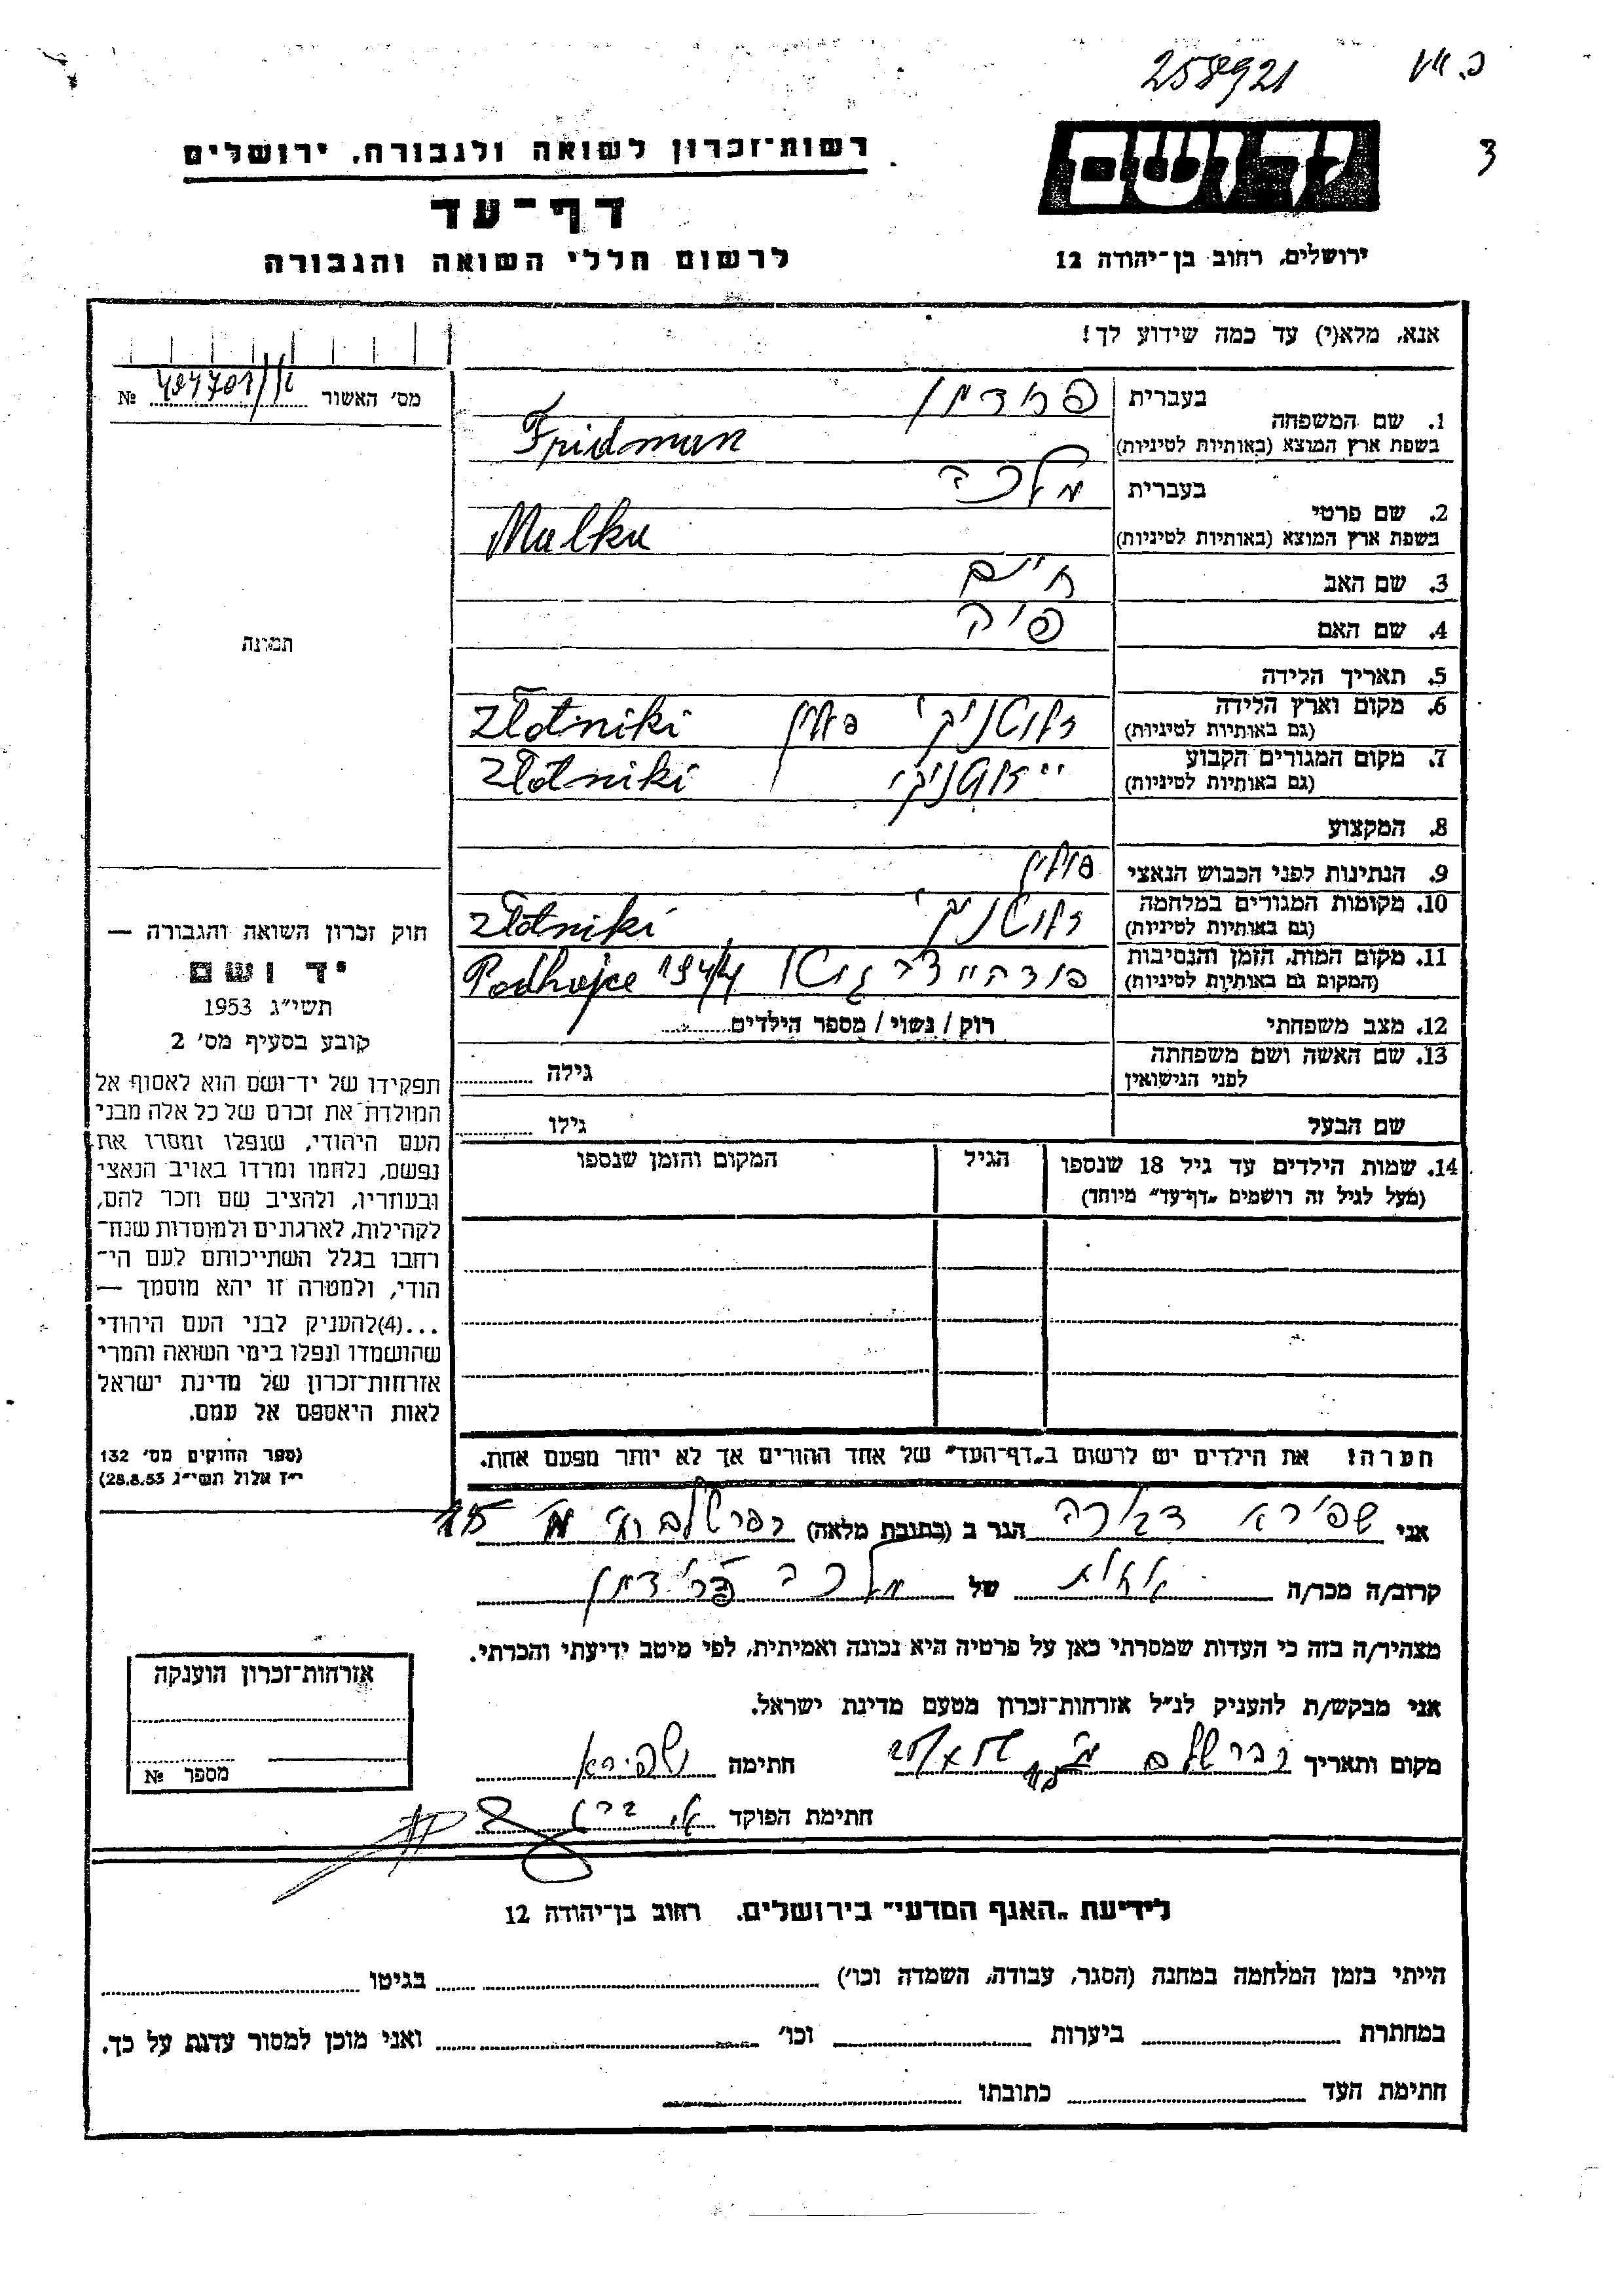 258921
רשות־זכרון לשואה ולגבורה, ירושלים
יד ושם
3
דף־עד
לרשום חללי השואה והגבורה
ירושלים, רחוב בן־יהודה 12
אנא, מלא(י) עד כמה שידוע לך!
מס׳ האשור №
1. שם המשפחה
בעברית
פרידמן
בשפת ארץ המוצא (באותיות לטיניות)
Fridman
2. שם פרטי
בעברית
מלכה
בשפת ארץ המוצא (באותיות לטיניות)
Malka
3. שם האב חיים
4. שם האם
תמונה
5. תאריך הלידה
6. מקום וארץ הלידה (גם באותיות לטיניות) זלוטניקי פולין Złotniki
7. מקום המגורים הקבוע (גם באותיות לטיניות) זלוטניקי Złotniki
8. המקצוע
9. הנתינות לפני הכבוש הנאצי פולין
10. מקומות המגורים במלחמה (גם באותיות לטיניות) זלוטניקי Złotniki
11. מקום המות, הזמן והנסיבות (המקום גם באותיות לטיניות) פודהייצה גיטו 1944 Podhajce
12. מצב משפחתי רוק / נשוי / מספר הילדים
13. שם האשה ושם משפחתה לפני הנישואין גילה
שם הבעל גילו
14. שמות הילדים עד גיל 18 שנספו (מעל לגיל זה רושמים „דף־עד״ מיוחד)
הגיל
המקום והזמן שנספו
חוק זכרון השואה והגבורה —
יד ושם
תשי״ג 1953
קובע בסעיף מס׳ 2
תפקידו של יד־ושם הוא לאסוף אל
המולדת את זכרם של כל אלה מבני
העם היהודי, שנפלו ומסרו את
נפשם, נלחמו ומרדו באויב הנאצי
ובעוזריו, ולהציב שם וזכר להם,
לקהילות, לארגונים ולמוסדות שנח־
רבו בגלל השתייכותם לעם הי־
הודי, ולמטרה זו יהא מוסמך —
...(4)להעניק לבני העם היהודי
שהושמדו ונפלו בימי השואה והמרי
אזרחות־זכרון של מדינת ישראל
לאות היאספם אל עמם.
(ספר החוקים מס׳ 132
י״ז אלול תשי״ג 28.8.53)
הערה! את הילדים יש לרשום ב„דף־העד״ של אחד ההורים אך לא יותר מפעם אחת.
אני שפירא דבורה הגר ב (כתובת מלאה)
קרוב/ה מכר/ה אחות של מלכה פרידמן
מצהיר/ה בזה כי העדות שמסרתי כאן על פרטיה היא נכונה ואמיתית, לפי מיטב ידיעתי והכרתי.
אני מבקש/ת להעניק לנ״ל אזרחות־זכרון מטעם מדינת ישראל.
מקום ותאריך חתימה שפירא
חתימת הפוקד
אזרחות־זכרון הוענקה
מספר №
לידיעת „האגף המדעי״ בירושלים, רחוב בן־יהודה 12
הייתי בזמן המלחמה במחנה (הסגר, עבודה, השמדה וכו׳) בגיטו
במחתרת ביערות וכו׳ ואני מוכן למסור עדות על כך.
חתימת העד כתובתו